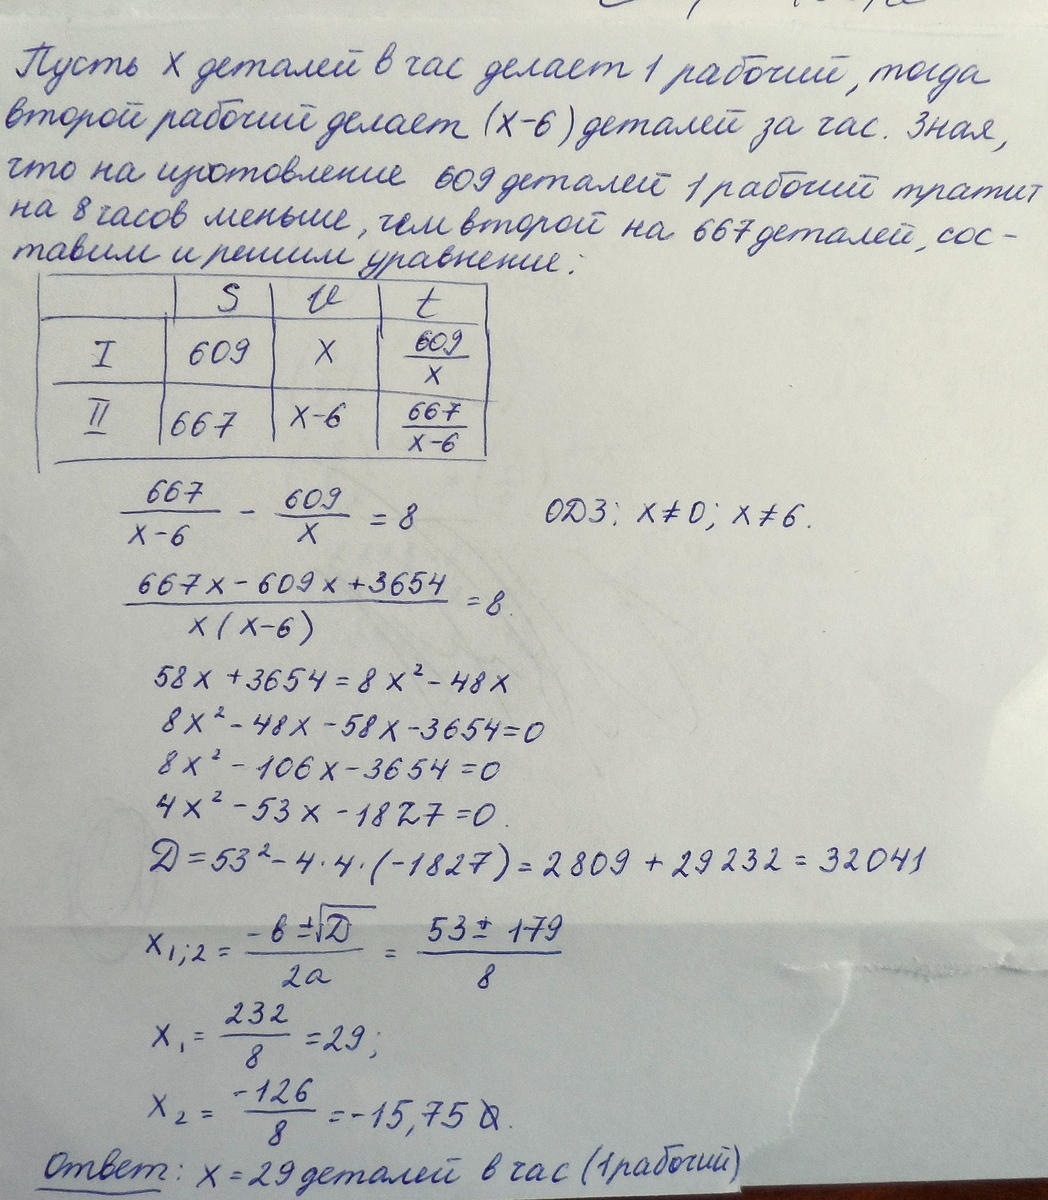 Пусть x деталей в час делает 1 рабочий, тогда
второй рабочий делает (x-6) деталей за час. Зная,
что на изготовление 609 деталей 1 рабочий тратит
на 8 часов меньше, чем второй на 667 деталей, сос-
тавим и решим уравнение:
S v t
I 609 x 609/x
II 667 x-6 667/(x-6)
667/(x-6) - 609/x = 8 ОДЗ: x≠0; x≠6.
(667x - 609x + 3654)/(x(x-6)) = 8.
58x + 3654 = 8x² - 48x
8x² - 48x - 58x - 3654 = 0
8x² - 106x - 3654 = 0
4x² - 53x - 1827 = 0.
D = 53² - 4·4·(-1827) = 2809 + 29232 = 32041
x₁;₂ = (-b ± √D)/(2a) = (53 ± 179)/8
x₁ = 232/8 = 29;
x₂ = -126/8 = -15,75
Ответ: x = 29 деталей в час (1 рабочий)